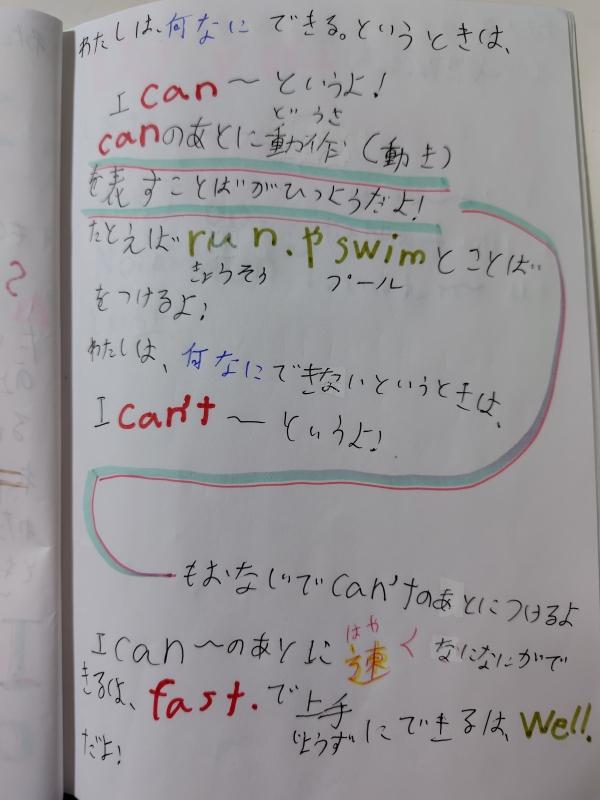 わたしは、何なにできる。というときは、
I can 〜というよ!
どうさ
canのあとに動作(動き)
を表すことばがひつようだよ!
たとえば run.やswimとことば
きょうそう プール
をつけるよ!
わたしは、何なにできないというときは、
I can't 〜というよ!
もおなじでcan'tのあとにつけるよ
はや
I can〜のあとに速く なになにがで
きるは、fast.で上手にできるは、well.
じょうず
だよ!